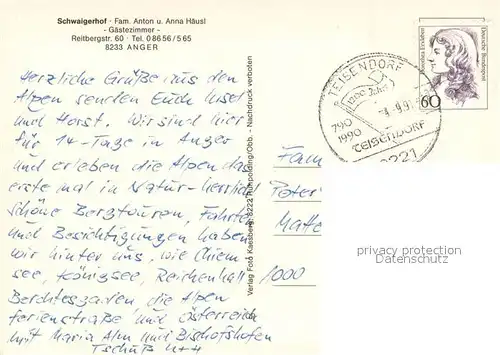 Schwaigerhof · Fam. Anton u. Anna Häusl
- Gästezimmer -
Reitbergstr. 60 · Tel. 0 86 56 / 5 65
8233 ANGER
Herzliche Grüße aus den
Alpen senden Euch
und Horst. Wir sind hier
für 14-Tage in Anger
und erleben die Alpen das
erste mal in Natur-herrlich!
Schöne Bergtouren, Fahrten
und Besichtigungen haben
wir hinter uns, wie Chiem
see, Königsee, Reichenhall
Berchtesgaden die Alpen
ferienstraße und Österreich
mit Maria Alm und Bischofshofen
Tschüß
Verlag Foto Kaasberg, 8222 Ruhpolding/Obb. - Nachdruck verboten
TEISENDORF
1200 Jahre
790
1990
TEISENDORF
8221
Deutsche Bundespost
60
Fam
Peter
Matte
1000
privacy protection
Datenschutz